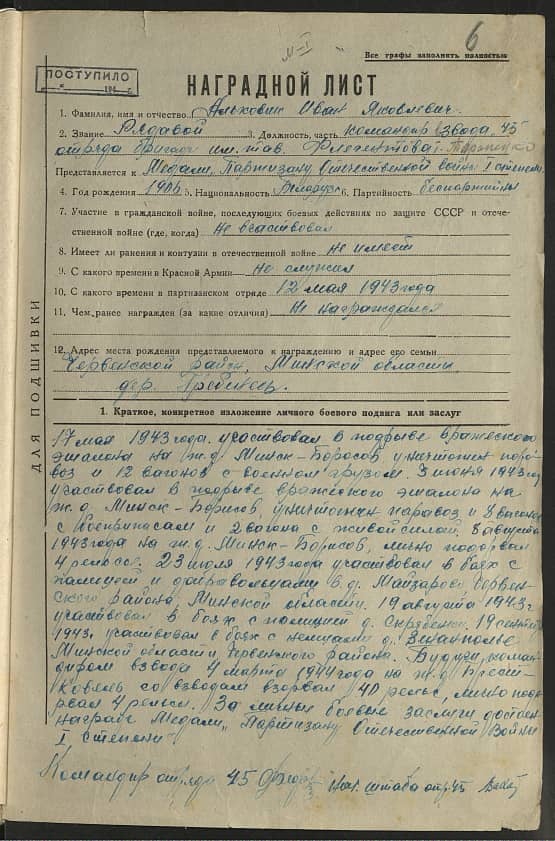 6
Все графы заполнить полностью
ПОСТУПИЛО
НАГРАДНОЙ ЛИСТ
1. Фамилия, имя и отчество Алькович Иван Яковлевич.
2. Звание Рядовой 3. Должность, часть командир взвода, 45
отряда бригады им. тов.
Представляется к Медали, Партизану Отечественной войны I степени
4. Год рождения 1906 5. Национальность Беларус 6. Партийность беспартийный
7. Участие в гражданской войне, последующих боевых действиях по защите СССР и отече-
ственной войне (где, когда) Не участвовал
8. Имеет ли ранения и контузии в отечественной войне не имеет
9. С какого времени в Красной Армии не служил
10. С какого времени в партизанском отряде 12 мая 1943 года
11. Чем ранее награжден (за какие отличия) Не награждался
12. Адрес места рождения представляемого к награждению и адрес его семьи
Червенский район, Минской области,
дер. Гребенец.
ДЛЯ ПОДШИВКИ
1. Краткое, конкретное изложение личного боевого подвига или заслуг
17 мая 1943 года. участвовал в подрыве вражеского
эшалона на ж.д. Минск-Борисов, уничтожен паро-
воз и 12 вагонов с военном грузом. 3 июня 1943 год
участвовал в подрыве вражеского эшалона на
ж.д. Минск-Борисов, уничтожен паравоз и 8 вагонов
с боеприпасам и 2 вагона с живой силой. 8 августа
1943 года на ж.д. Минск-Борисов, лично подорвал
4 рельсы. 23 июля 1943 года участвовал в боях с
полицией и добравольцами в д. Майзорово Червен-
ского района Минской области. 19 августа 1943 г
участвовал в боях с полицией д. 19 сентя
1943г. участвовал в боях с немцами д.
Минской области, Червенского района. Будучи коман-
диром взвода 4 марта 1944 года на ж.д. Брест-
Ковель со взводам взорвал 40 рельс, лично подо-
рвал 4 рельсы. За личные боевые заслуги достоен
награде Медали, "Партизану Отечественной Войны
I степени
Командир отряда 45 Нач. штаба отр. 45